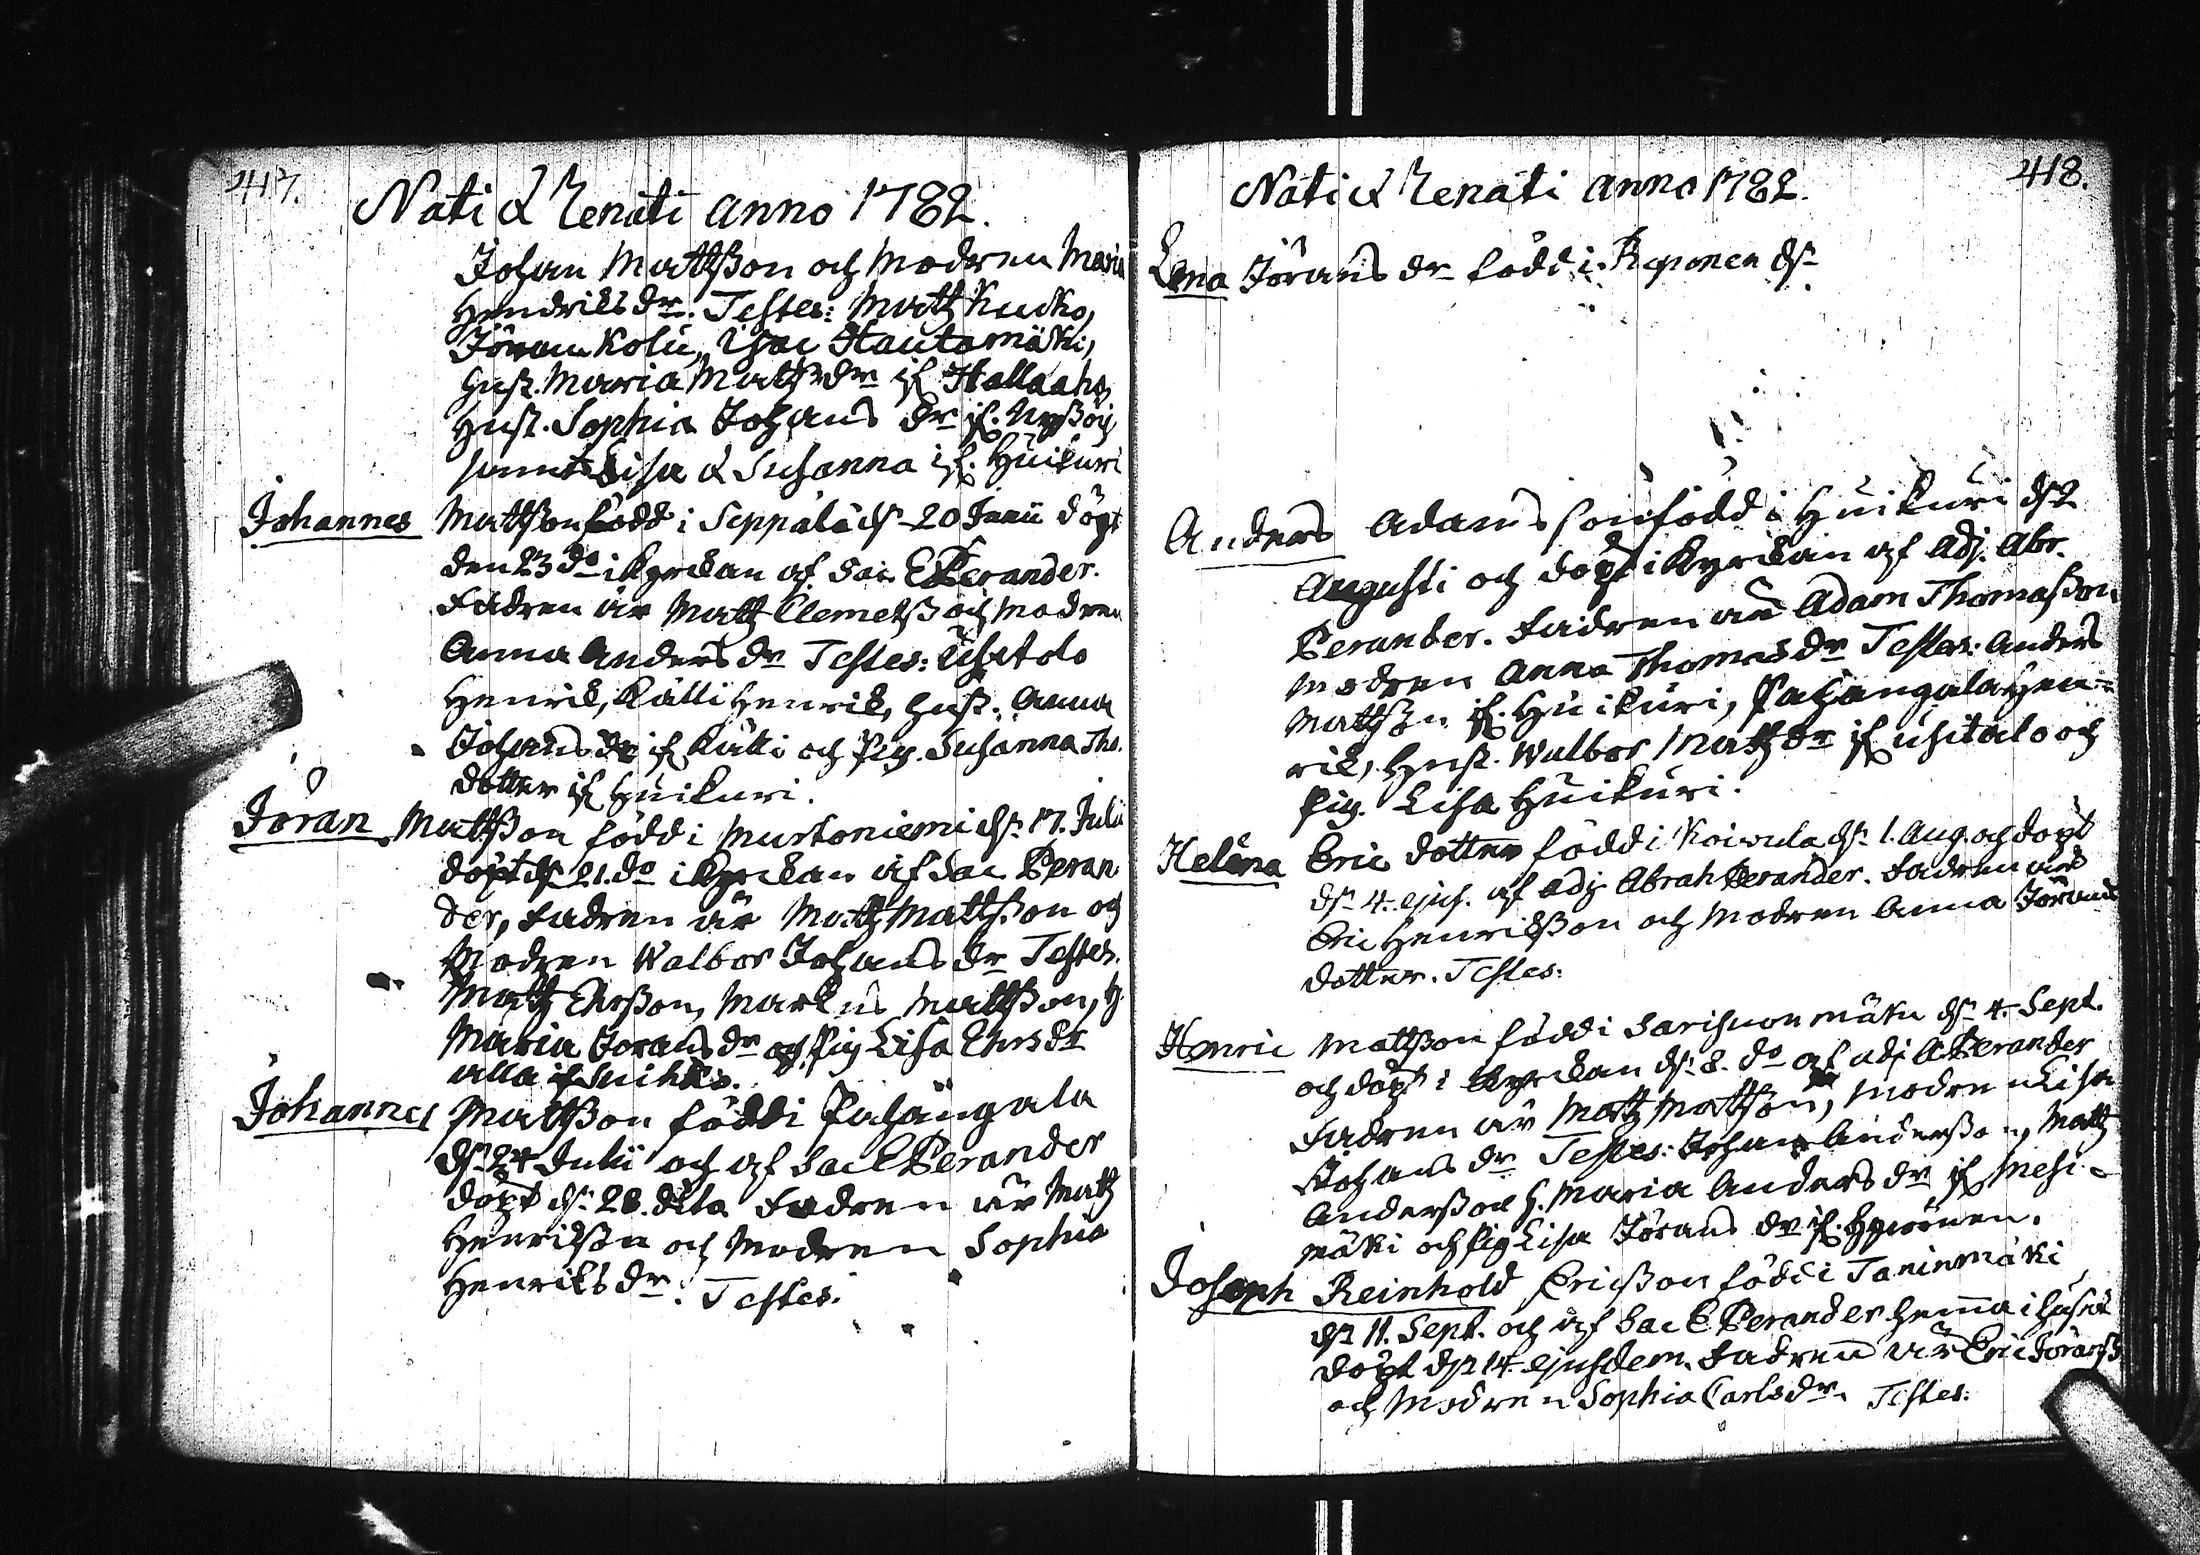 417.
Nati & Renati anno 1782.
Johan Mattsson och Modren Maria
Hendriks dr. Testes: Matz Kucko,
Jöran Kolu, Isac Hautamäki,
Hust. Maria Matz dr if Hallaaho,
Hust. Sophia Johans dr if.
samt Lisa & Susanna if. Huikuri
Johannes Mattsson född i Seppälä d. 20 Junii döpt
den 23 do i Kyrckan af Sac. E Perander.
Fadren är Matz Clemetss och Modren
Anna Anders dr Testes: Usitalo
Henrik, Kätti Henrik, Hust. Anna
Johans dr if Kätti och Pig. Susanna Tho.
dotter if Huikuri.
Jöran Mattsson född i Murtoniemi d. 17. Julii
döpt d. 21. do i Kyrckan af Sac Peran
der, Fadren är Matz Mattsson och
Modren Walbor Johans dr Testes.
Matz Ersson, Markus Mattsson, h.
Maria Jorans dr och Pig Lisa Ers dr
alla if
Johannes Mattsson född i Pajangala
d. 24 Julii och af Sac E Perander
döpt d. 28. dito Fadren är Matz
Henriksson och Modren Sophia
Henriks dr. Testes.
418.
Nati & Renati anno 1782.
Lena Jörans dr född i Reponen d.
Anders Adams son född i Huikuri d. 2
Augusti och döpt i Kyrckan af Adj. Abr.
Perander. Fadren är Adam Thomasson
Modren Anna Thomas dr Testes: Anders
Mattsson if. Huikuri, Pajangala Hen-
rik, Hust. Walbor Matz dr if Usitalo och
Pig. Lisa Huikuri.
Helena Eric dotter född i Koivula d. 1. Aug. och döpt
d. 4. ejus. af Adj Abrah Perander. Fadren är
Eric Henriksson och Modren Anna Jörans
dotter. Testes:
Henric Mattsson född i d. 4. Sept.
och döpt i Kyrckan d. 8. do af adj A Perander
Fadren är Matz Mattsson, Modren Lisa
Johans dr Testes: Johan Andersson, Matz
Andersson h. Maria Anders dr if Mesi-
mäki och Pig Lisa Jörans dr if. Hyvönen.
Joseph Reinhold Ericsson född i Taninmäki
d. 11. Sept. och af Sac E Perander hemma i huset
döpt d. 14. ejusdem. Fadren är Eric Jöranss
och Modren Sophia Carls dr. Testes: